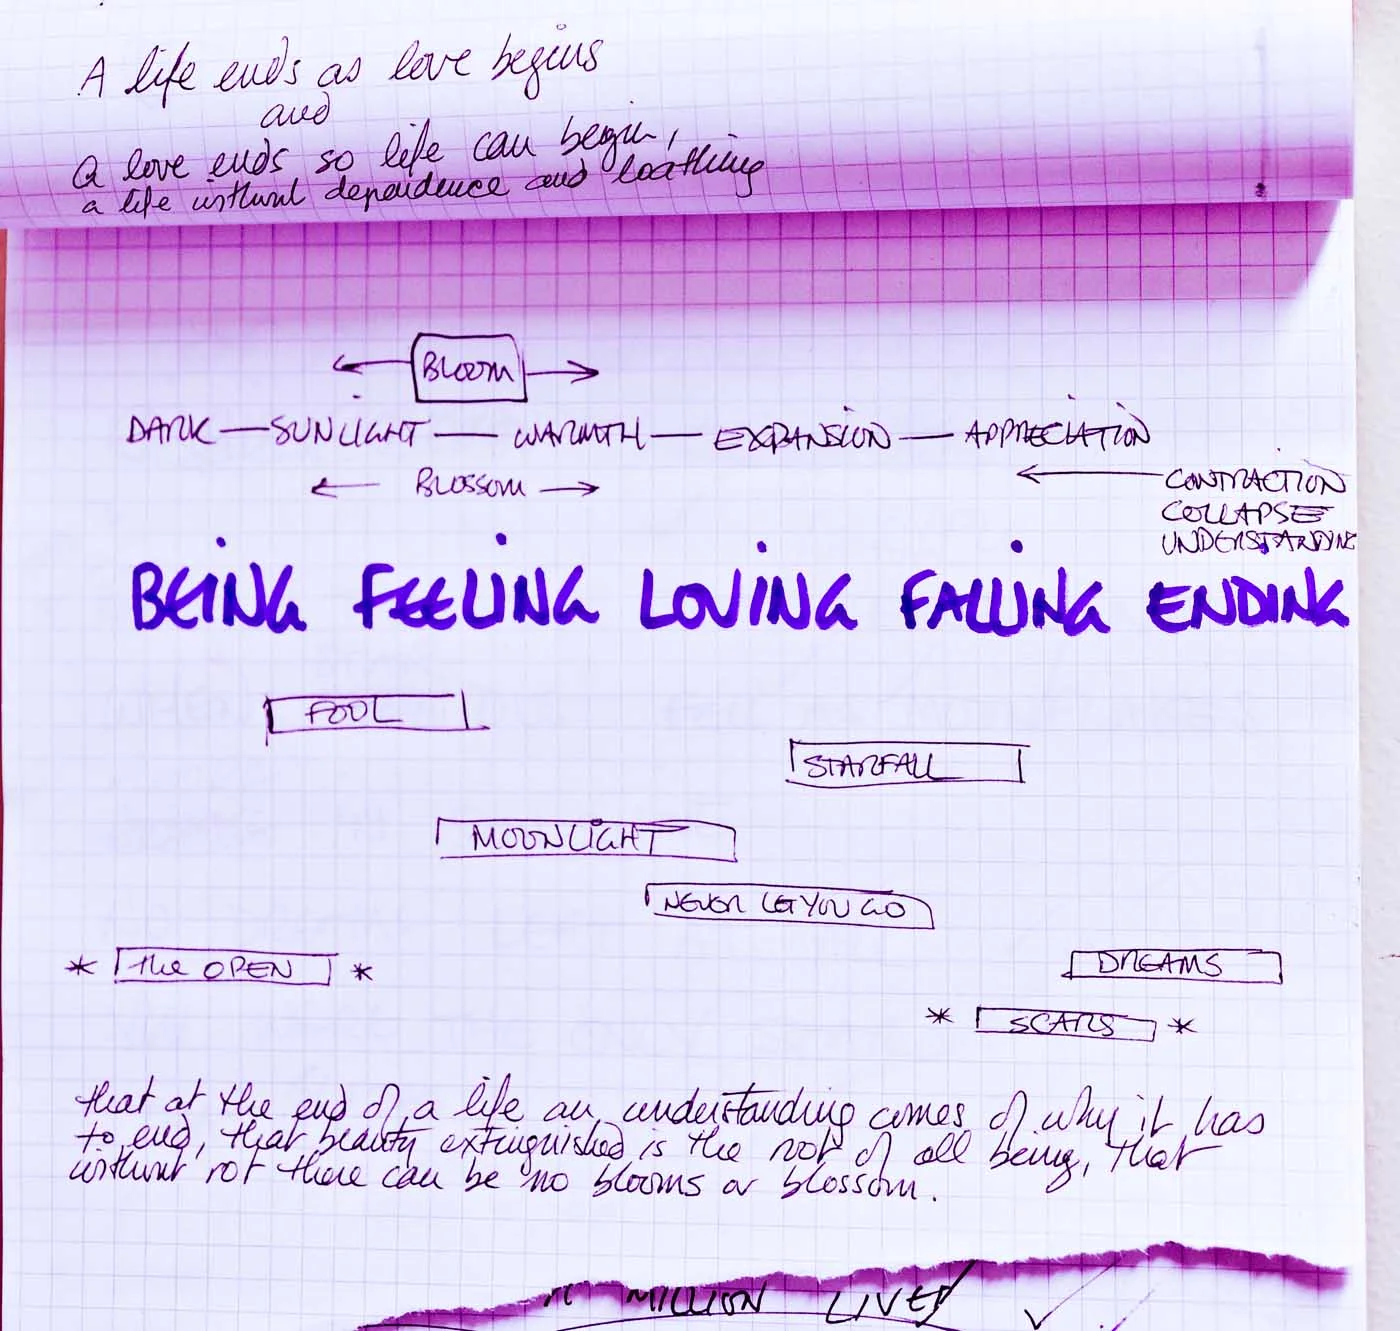 A life ends as love begins
and
a love ends so life can begin,
a life without dependence and loathing
BLOOM
DARK — SUNLIGHT — WARMTH — EXPANSION — APPRECIATION
BLOSSOM
CONTRACTION
COLLAPSE
UNDERSTANDING
BEING FEELING LOVING FALLING ENDING
FOOL
STARFALL
MOONLIGHT
NEVER LET YOU GO
* The OPEN *
DREAMS
* SCARS *
that at the end of a life an understanding comes of why it has
to end, that beauty extinguished is the rot of all being, that
without rot there can be no blooms or blossom.
MILLION LIVES